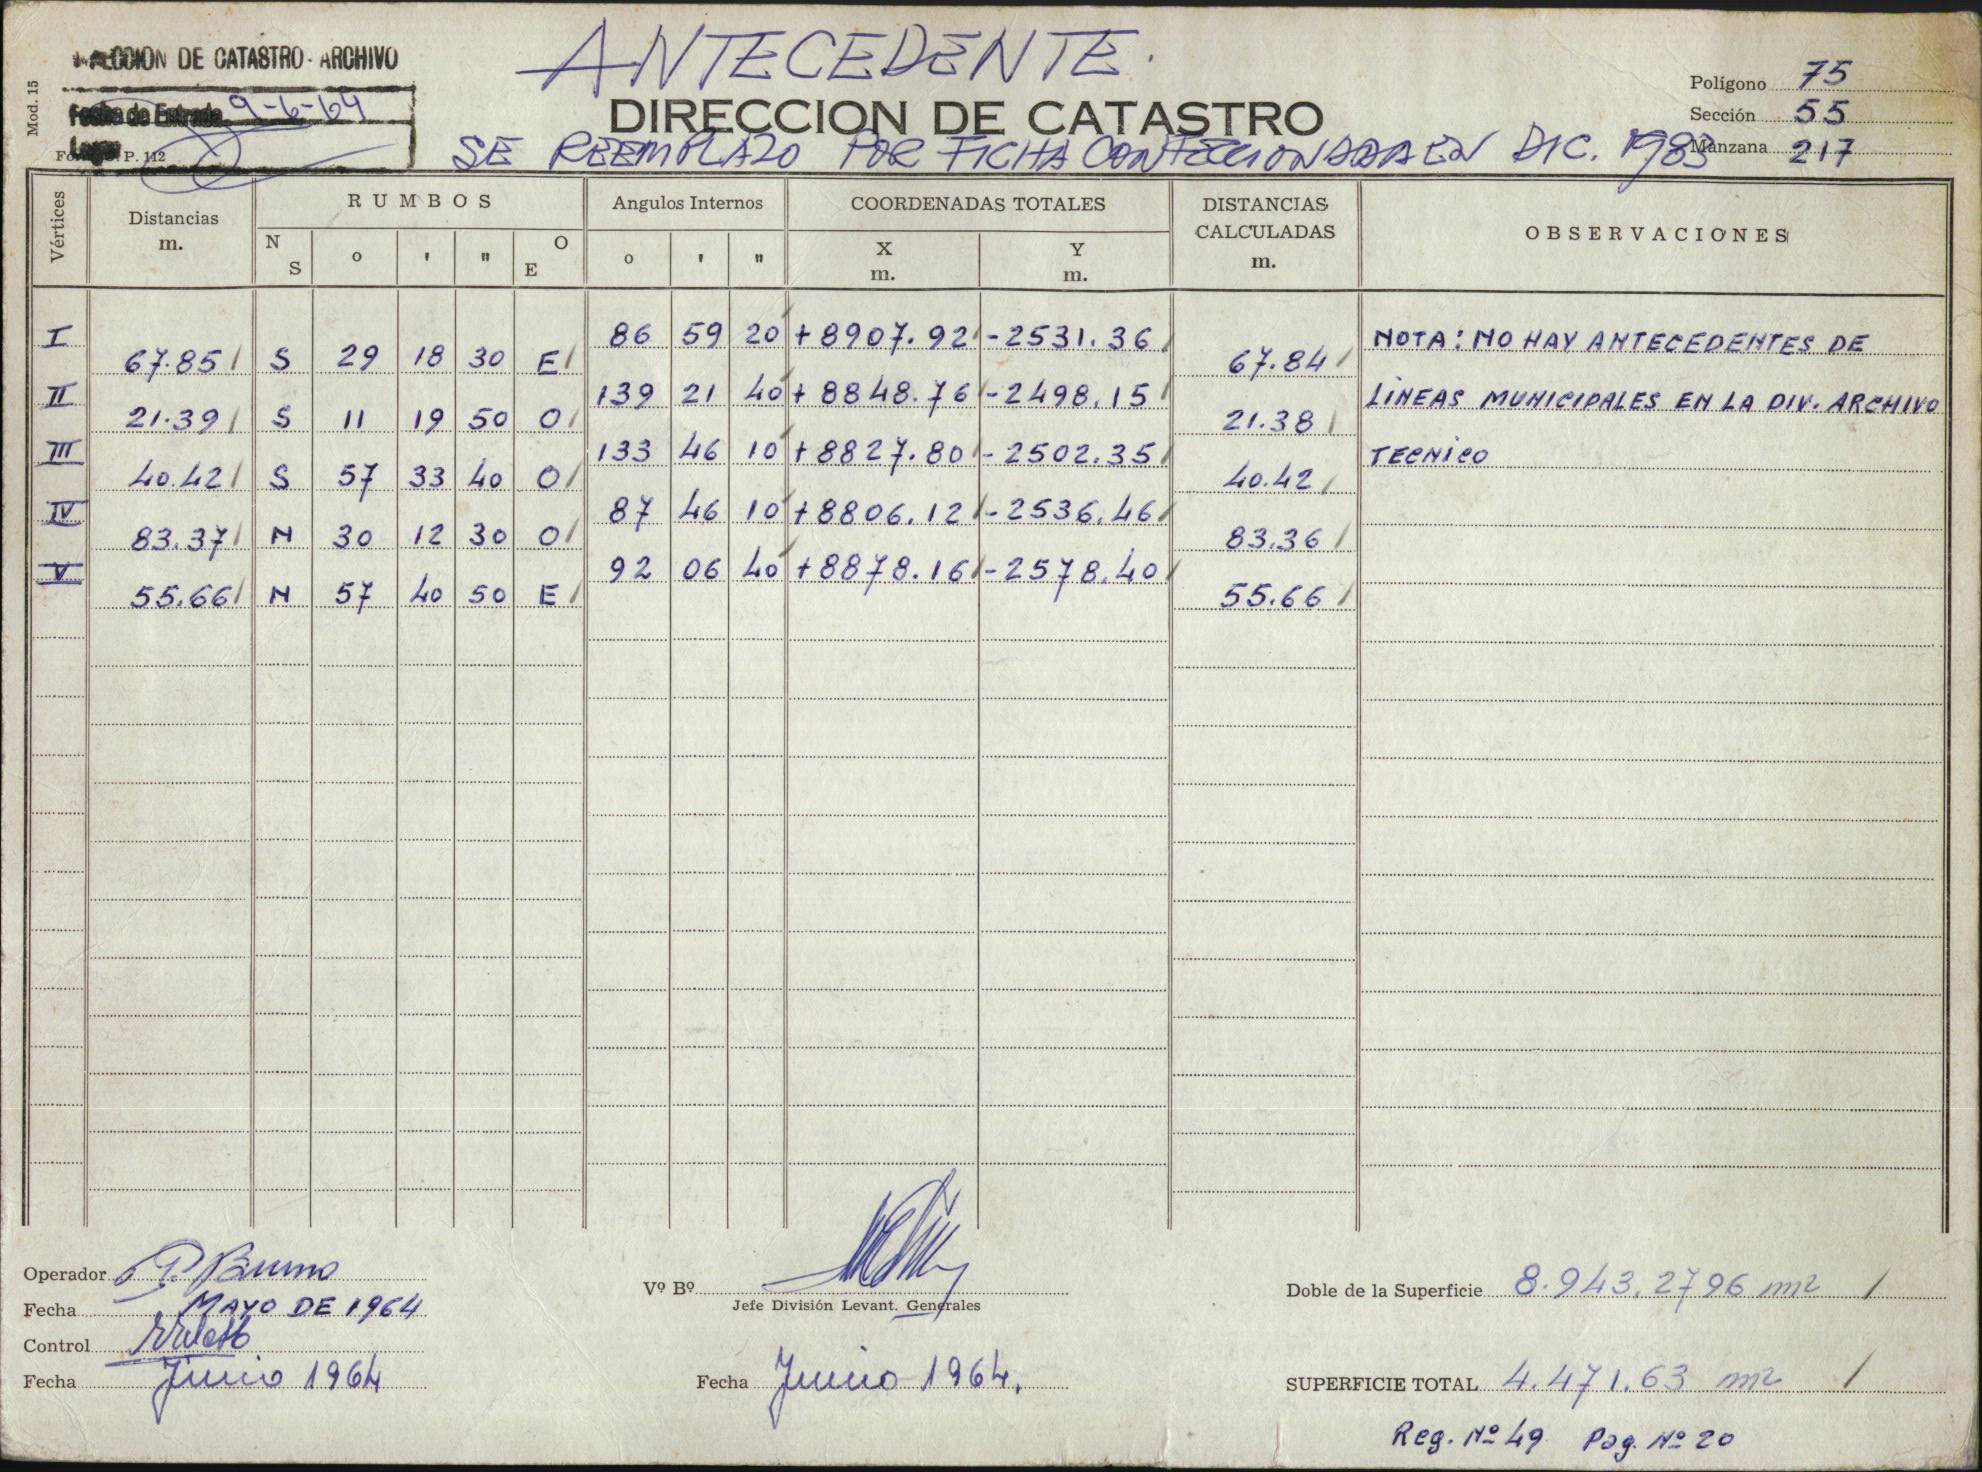 ANTECEDENTE.
CCION DE CATASTRO - ARCHIVO
Mod. 15
Fecha de Entrada 9-6-64
P. 112
DIRECCION DE CATASTRO
SE REEMPLAZO POR FICHA CONFECCIONADA EN DIC. 1983
Polígono 75
Sección 55
Manzana 217
Vértices Distancias m. RUMBOS Angulos Internos COORDENADAS TOTALES DISTANCIAS CALCULADAS m. OBSERVACIONES
N S o ' " E O o ' " X m. Y m.
I 86 59 20 +8907.92 -2531.36 NOTA: NO HAY ANTECEDENTES DE
67.85 S 29 18 30 E 67.84
II 139 21 40 +8848.76 -2498.15 LINEAS MUNICIPALES EN LA DIV. ARCHIVO
21.39 S 11 19 50 O 21.38
III 133 46 10 +8827.80 -2502.35 TECNICO
40.42 S 57 33 40 O 40.42
IV 87 46 10 +8806.12 -2536.46
83.37 N 30 12 30 O 83.36
V 92 06 40 +8878.16 -2578.40
55.66 N 57 40 50 E 55.66
Operador P. Bruno
Fecha MAYO DE 1964
Control
Fecha Junio 1964
Vº Bº
Jefe División Levant. Generales
Fecha Junio 1964.
Doble de la Superficie 8.943,2796 m2
SUPERFICIE TOTAL 4.471.63 m2
Reg. Nº 49 Pag. Nº 20